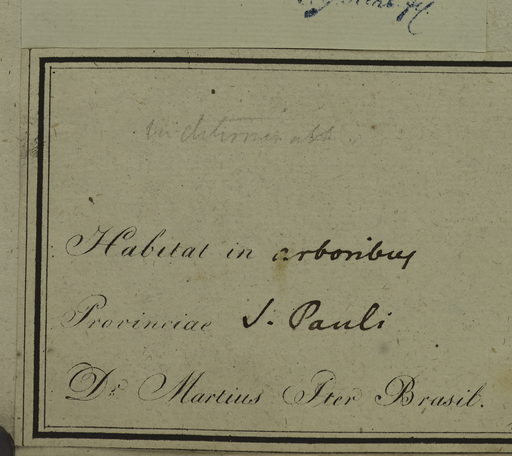 indeterminabl.
Habitat in arboribus
Provinciae S. Pauli
Dr. Martius Iter Brasil.